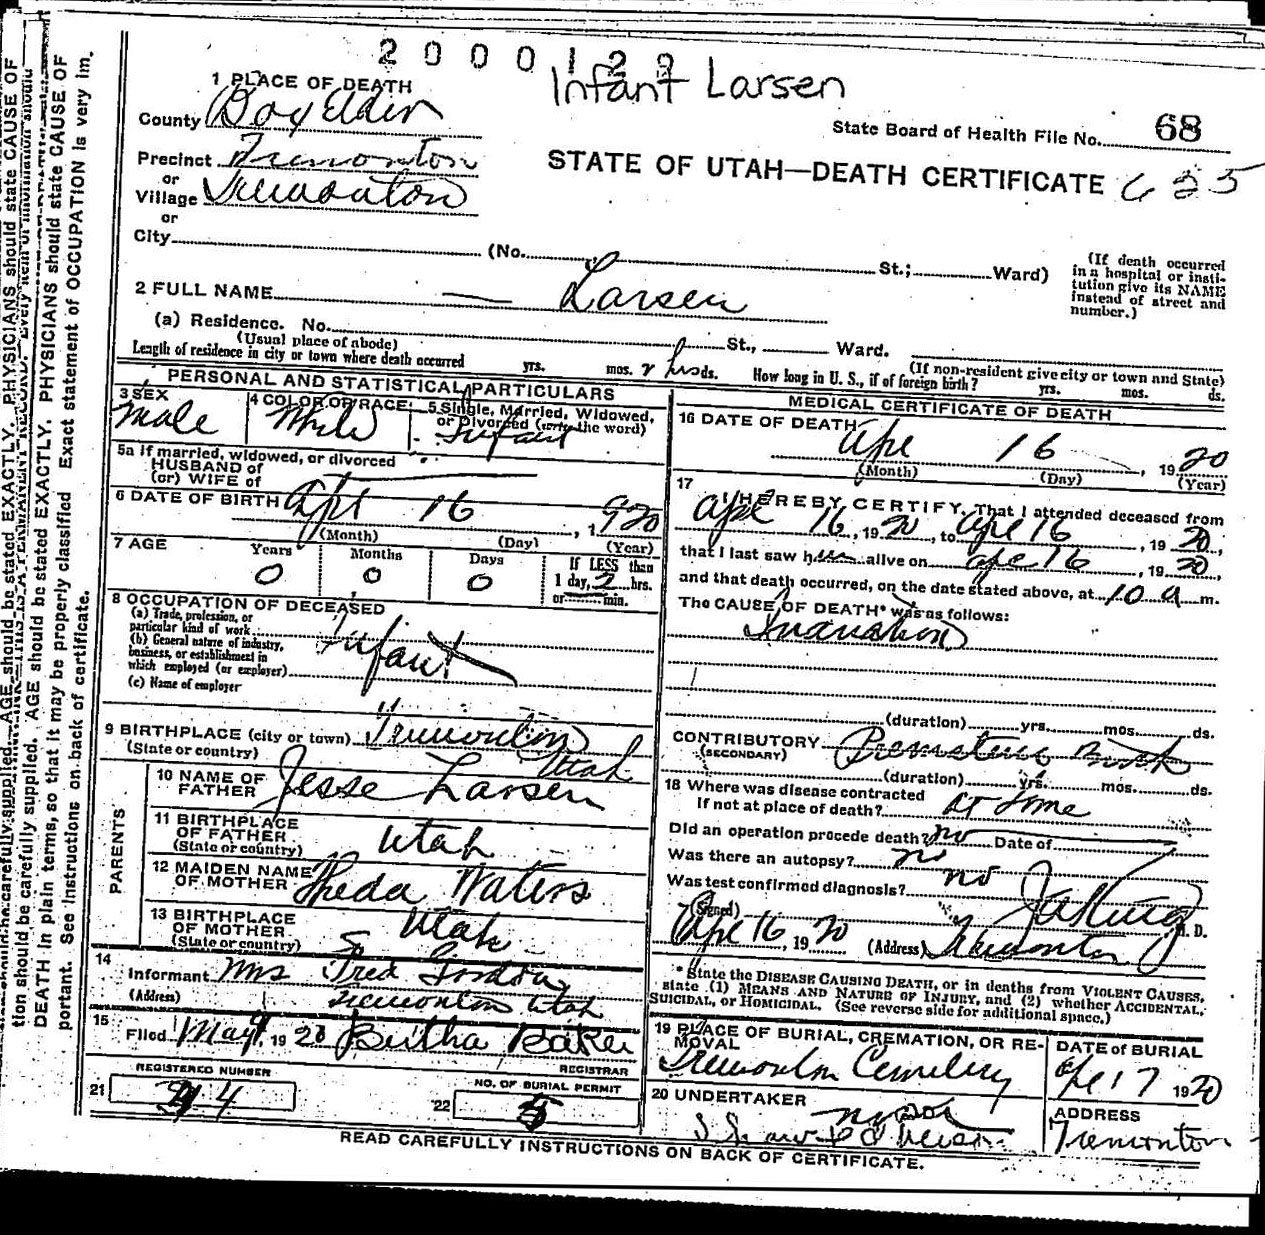 2 0 0 0 1 2 9
Infant Larsen
1 PLACE OF DEATH
County Box Elder
State Board of Health File No. 68
Precinct Tremonton
STATE OF UTAH—DEATH CERTIFICATE 625
or
Village Tremonton
or
City (No. St.; Ward)
(If death occurred in a hospital or insti-
tution give its NAME instead of street and
number.)
2 FULL NAME — Larsen
(a) Residence. No. St., Ward.
(Usual place of abode)
(If non-resident give city or town and State)
Length of residence in city or town where death occurred yrs. mos. 2 hrs ds. How long in U. S., if of foreign birth? yrs. mos. ds.
PERSONAL AND STATISTICAL PARTICULARS
3 SEX Male
4 COLOR OR RACE White
5 Single, Married, Widowed,
or Divorced (write the word)
Infant
5a If married, widowed, or divorced
HUSBAND of
(or) WIFE of
6 DATE OF BIRTH Apr 16, 1920
(Month) (Day) (Year)
7 AGE Years 0 Months 0 Days 0
If LESS than
1 day, 2 hrs.
or min.
8 OCCUPATION OF DECEASED
(a) Trade, profession, or
particular kind of work
(b) General nature of industry,
business, or establishment in
which employed (or employer)
Infant
(c) Name of employer
9 BIRTHPLACE (city or town) Tremonton
(State or country) Utah
PARENTS
10 NAME OF
FATHER Jesse Larsen
11 BIRTHPLACE
OF FATHER
(State or country) Utah
12 MAIDEN NAME
OF MOTHER Theda Waters
13 BIRTHPLACE
OF MOTHER
(State or country) Utah
14
Informant Mrs Fred Gordon
(Address) Tremonton Utah
15
Filed May 1, 1920 Bertha Baker
REGISTRAR
REGISTERED NUMBER
21 4
NO. OF BURIAL PERMIT
22 5
MEDICAL CERTIFICATE OF DEATH
16 DATE OF DEATH
Apr 16, 1920
(Month) (Day) (Year)
17 I HEREBY CERTIFY, That I attended deceased from
Apr 16, 1920, to Apr 16, 1920,
that I last saw him alive on Apr 16, 1920,
and that death occurred, on the date stated above, at 10 a m.
The CAUSE OF DEATH* was as follows:
Inanation
(duration) yrs. mos. ds.
CONTRIBUTORY Premature Birth
(SECONDARY)
(duration) yrs. mos. ds.
18 Where was disease contracted
If not at place of death? at Home
Did an operation procede death? no Date of
Was there an autopsy? no
Was test confirmed diagnosis? no
(Signed) M. D.
Apr 16, 1920 (Address) Tremonton
* State the DISEASE CAUSING DEATH, or in deaths from VIOLENT CAUSES,
state (1) MEANS AND NATURE OF INJURY, and (2) whether ACCIDENTAL,
SUICIDAL, or HOMICIDAL. (See reverse side for additional space.)
19 PLACE OF BURIAL, CREMATION, OR RE-
MOVAL
Tremonton Cemetery
DATE of BURIAL
Apr 17 1920
20 UNDERTAKER
ADDRESS
Tremonton
READ CAREFULLY INSTRUCTIONS ON BACK OF CERTIFICATE.
tion should be carefully supplied. AGE should be stated EXACTLY. PHYSICIANS should state CAUSE OF
DEATH in plain terms, so that it may be properly classified Exact statement of OCCUPATION is very im-
portant. See Instructions on back of certificate.